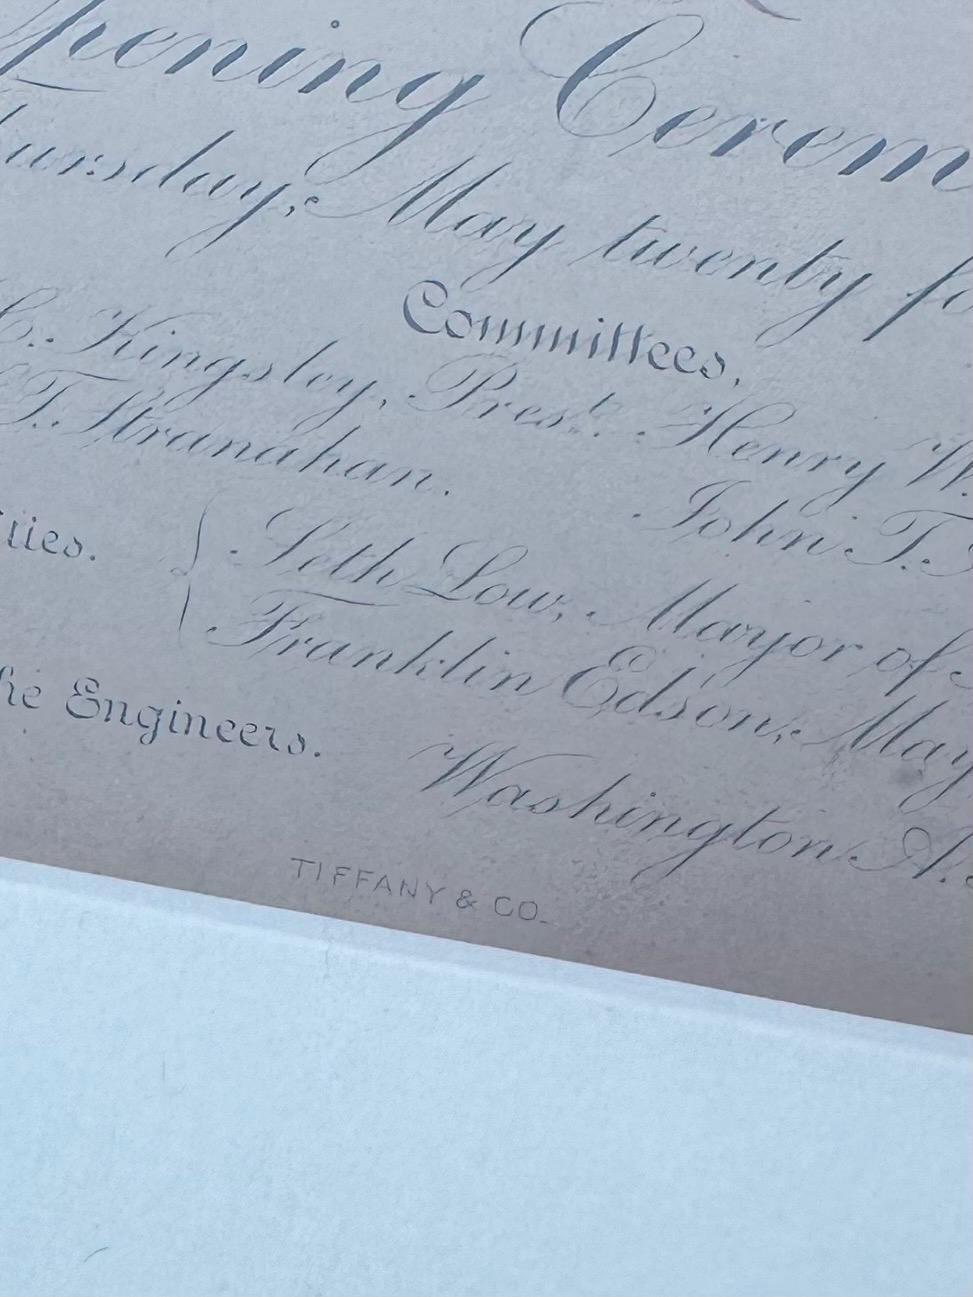 pening Cerem
ursday, May twenty fo
Committees.
C. Kingsley, Prest. Henry W.
T. Stranahan. John T.
ties. { Seth Low, Mayor of
Franklin Edson, May
he Engineers. Washington A.
TIFFANY & CO.